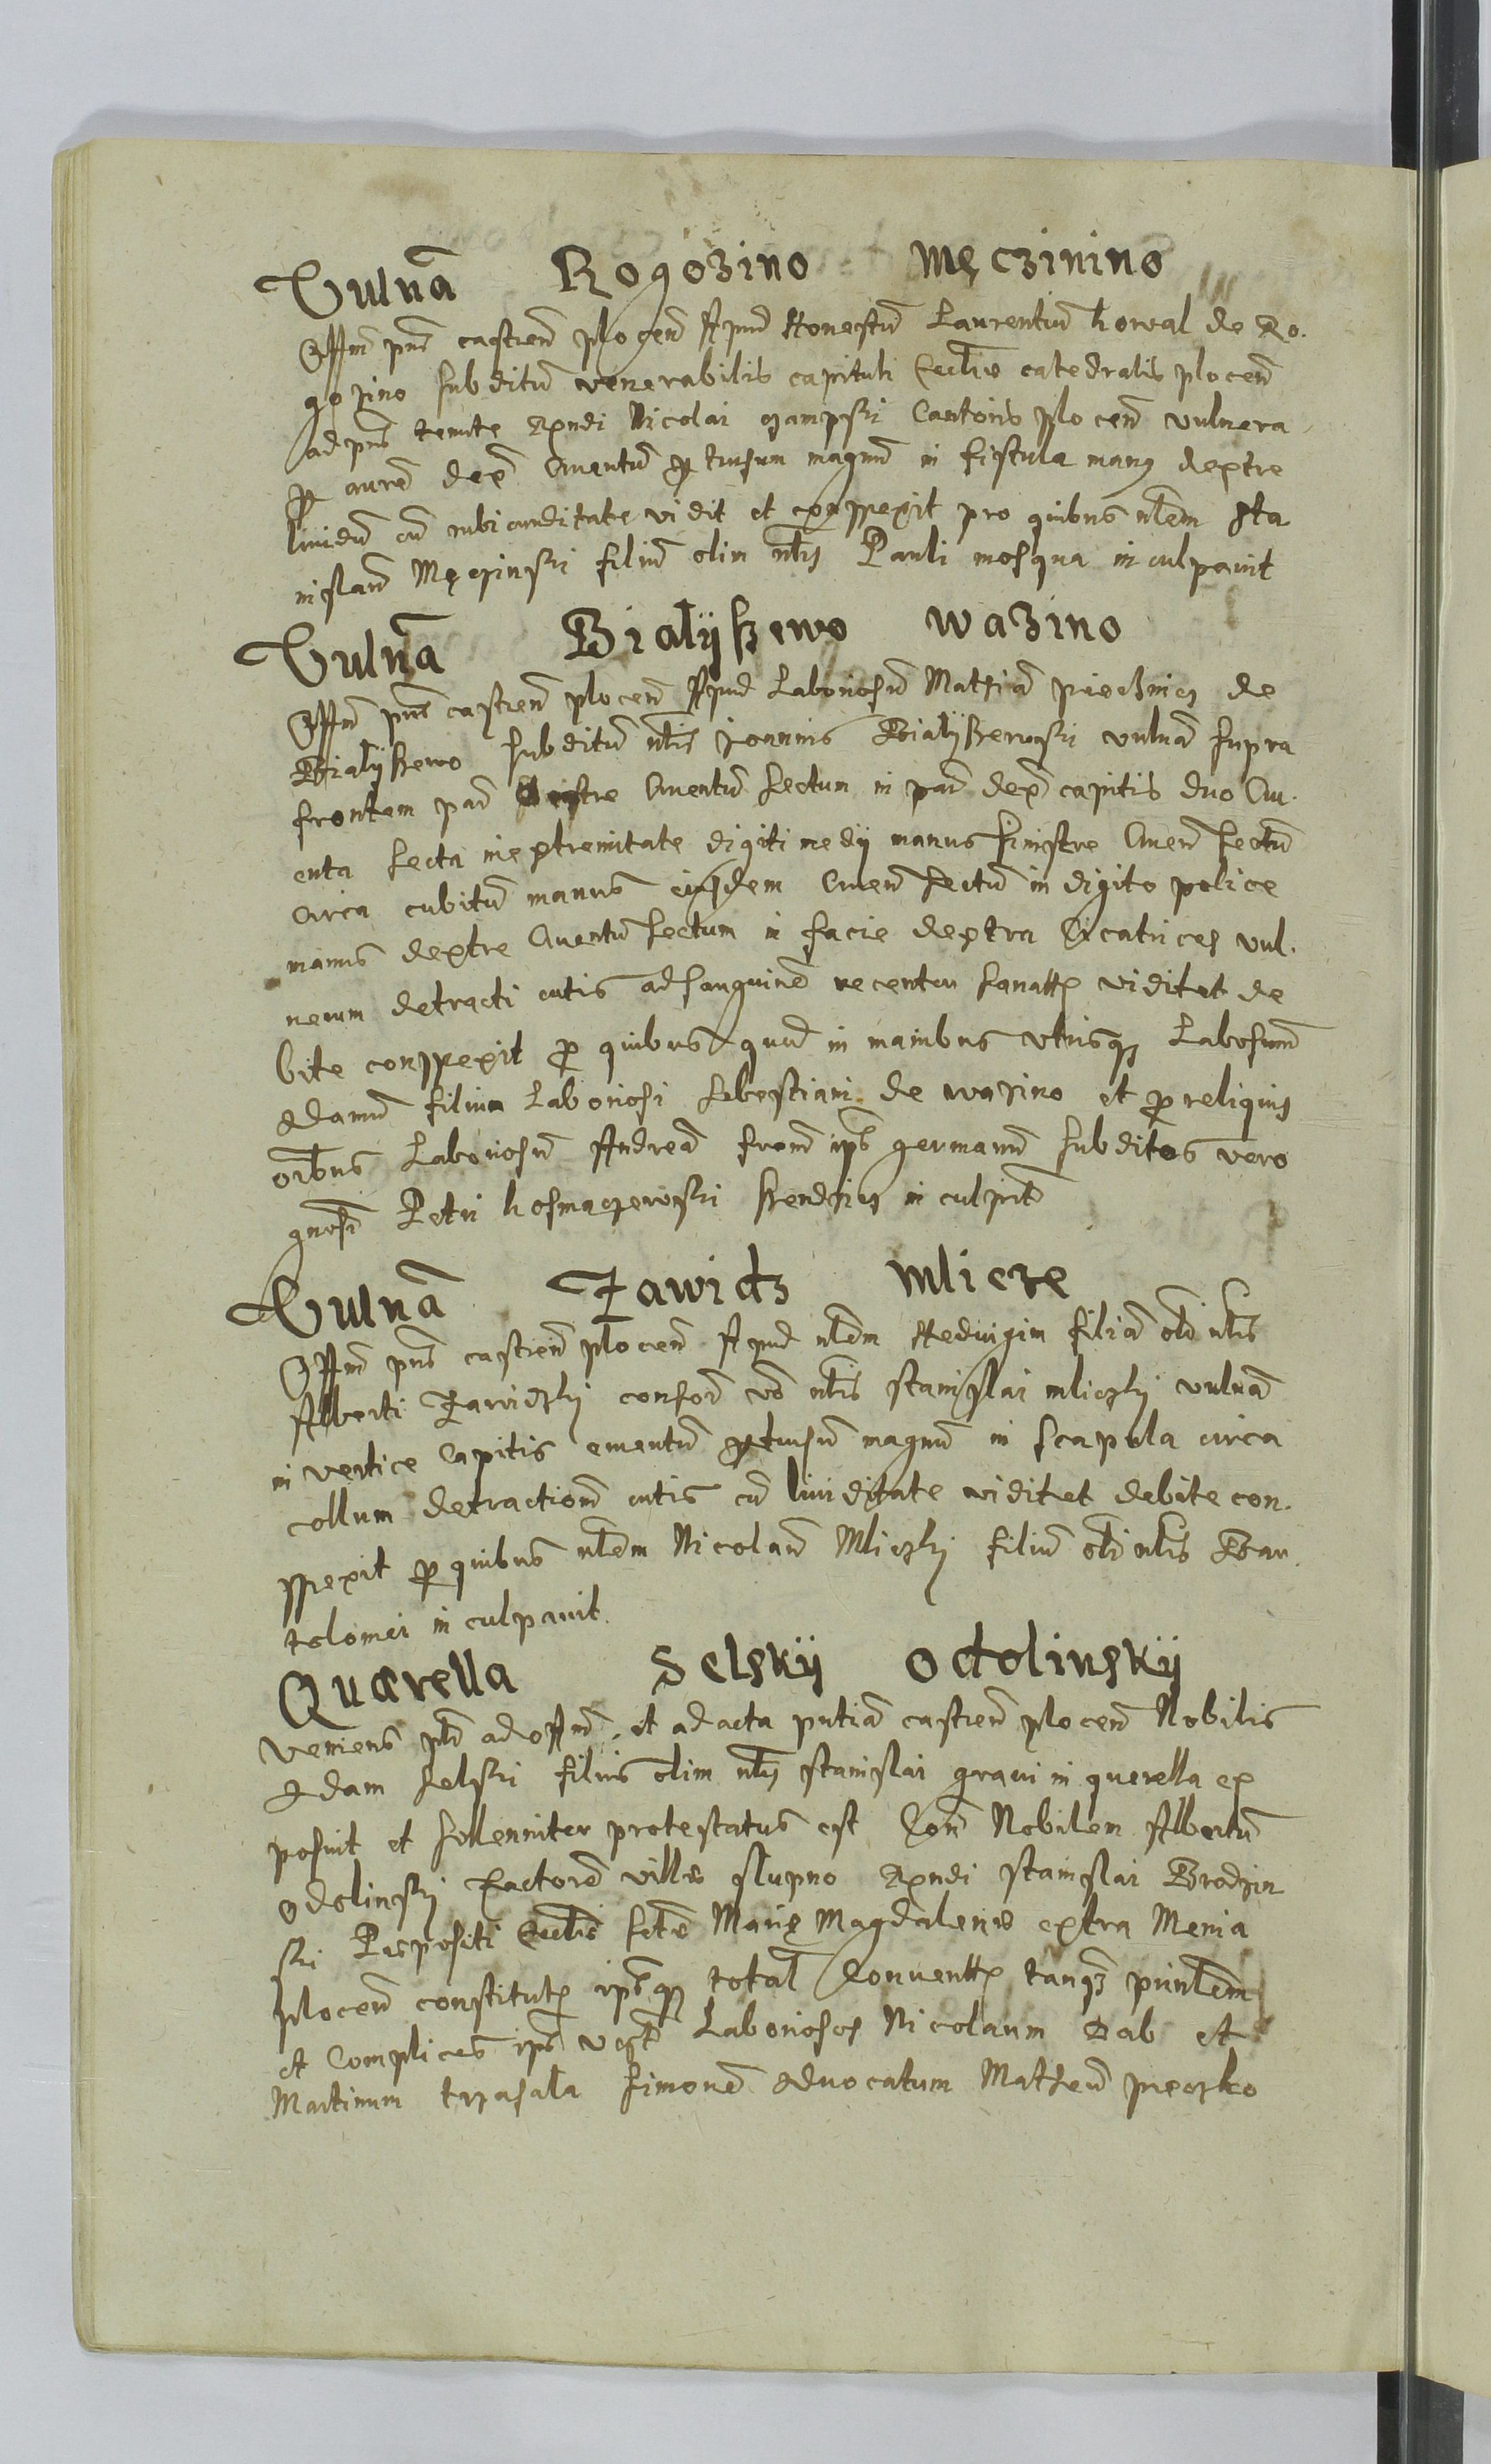 Vulnā Rogozino Męczinino
Offm pns castren plocen Apud Honestū Laurentiū kowal de Ro.
gozino subditū venerabilis capituli Eccliæ catedralis plocen
ad pns tenute Rndi Nicolai Cantoris plocen vulnera
aurē dex Cruentū tusum magnū in fistula manȝ dextre
liuidū cū rubicunditate vidit et conspexit pro quibus nlem Sta
nislaū Męczinski filiū olim nlis Pauli mosqua inculpauit
Vulnā Białÿszewo Wazino
Offm pns castren plocen Apud Laboriosū Mathiā de
Białÿszewo subditū nlis Joannis Białÿszewski vulnā supra
frontem par Cruentū sectum in par dex capitis duo Cru.
enta secta in extremitate digiti medÿ manus sinistre Cruen sectū
circa cubitū manus eiusdem Cruen sectū in digito police
manus dextre Cruentū sectum in facie dextra Cicatrices vul.
nerum detracti cutis ad sanguinē recenter vidit et de
bite conspexit p quibus quod in manibus utrisqȝ Labosum
Adamū filium Laboriosi Sebestiani de wazino et p reliquis
oibus Laboriosū Andreā frem ips germanū subditos vero
gnosi Petri inculpit
Vulnā Zawidz Mlicze
Offm pns castren plocen Apud nlem Hedvigim filiā olī nlis
Alberti Zawidzki consor vo nlis Stanislai mliczki vulnā
in vertice Capitis cruentū tusū magnū in scapula circa
collum detractionē cutis cū liuiditate vidit et debite con.
spexit p quibus nlem Nicolaū Mliczki filiū olī nlis Bar.
tolomei inculpauit.
Quærella Selskÿ Odolinskÿ
Veniens pld ad offm et ad acta pntia castren plocen Nobilis
Adam Selski filius olim nlis Stanislai graui in querella ex
posuit et sollenniter protestatus est Con Nobilem Albertū
Odolinski Factorē villæ slupno Rndi Stanislai Brodzin
ski Præpositi Ecclis sctæ Marię Magdalenæ extra Menia
plocen constitut total Conuent tanqȝ prinlem
et Complices ips Laboriosos Nicolaum Dab et
Martinum Simonē Aduocatum Matheū